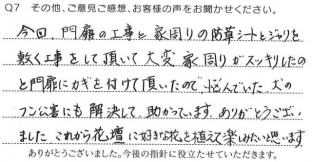 Q7 その他、ご意見ご感想、お客様の声をお聞かせください。
今回、門扉の工事と家周りの防草シートとジャリを
敷く工事をして頂いて大変家周りがスッキリしたの
と門扉にカギを付けて頂いたので悩んでいた犬の
フン公害にも解決して助かっています。ありがとうござい
ました これから花壇に好きな花を植えて楽しみたい思います
ありがとうございました。今後の指針に役立たせていただきます。